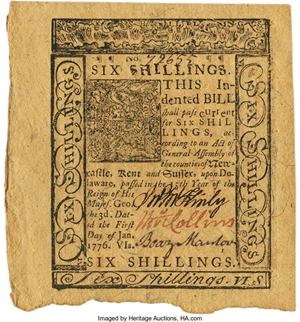 No.
SIX SHILLINGS.
THIS In-
dented BILL
shall pass current
for SIX SHIL-
LINGS, ac-
cording to an Act of
General Assembly of
the counties of New-
castle, Kent and Sussex, upon De-
laware, passed in the 15th Year of the
Reign of His
Majesty Geo.
the 3d. Dat-
ed the First
Day of Jan.
1776. VIs.
SIX SHILLINGS.
SIX SHILLINGS
SIX SHILLINGS
Six Shillings. VI S.
Imaged by Heritage Auctions, HA.com